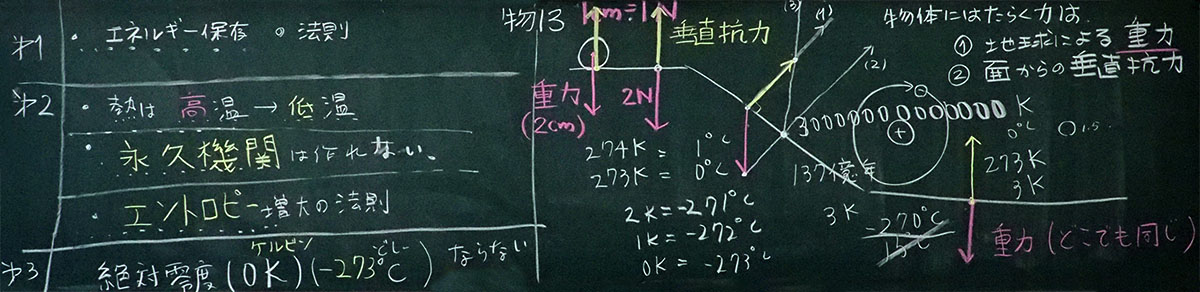 第1
・エネルギー保存の法則
第2
・熱は高温→低温
・永久機関は作れない。
・エントロピー増大の法則
第3
ケルビン
どしー
絶対零度(0K)(-273℃)ならない
物13
1cm=1N
垂直抗力
重力
(2cm)
2N
274K = 1℃
273K = 0℃
2K = -271℃
1K = -272℃
0K = -273℃
(3)
(1)
(2)
137億年
物体にはたらく力は
① 地球による重力
② 面からの垂直抗力
3000000000000K
+
0℃
273K
3K
3K
-270℃
重力(どこでも同じ)